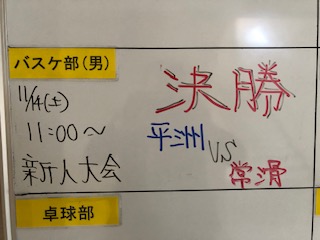 バスケ部(男)
11/14(土)
11:00～
新人大会
決勝
平洲 VS 常滑
卓球部